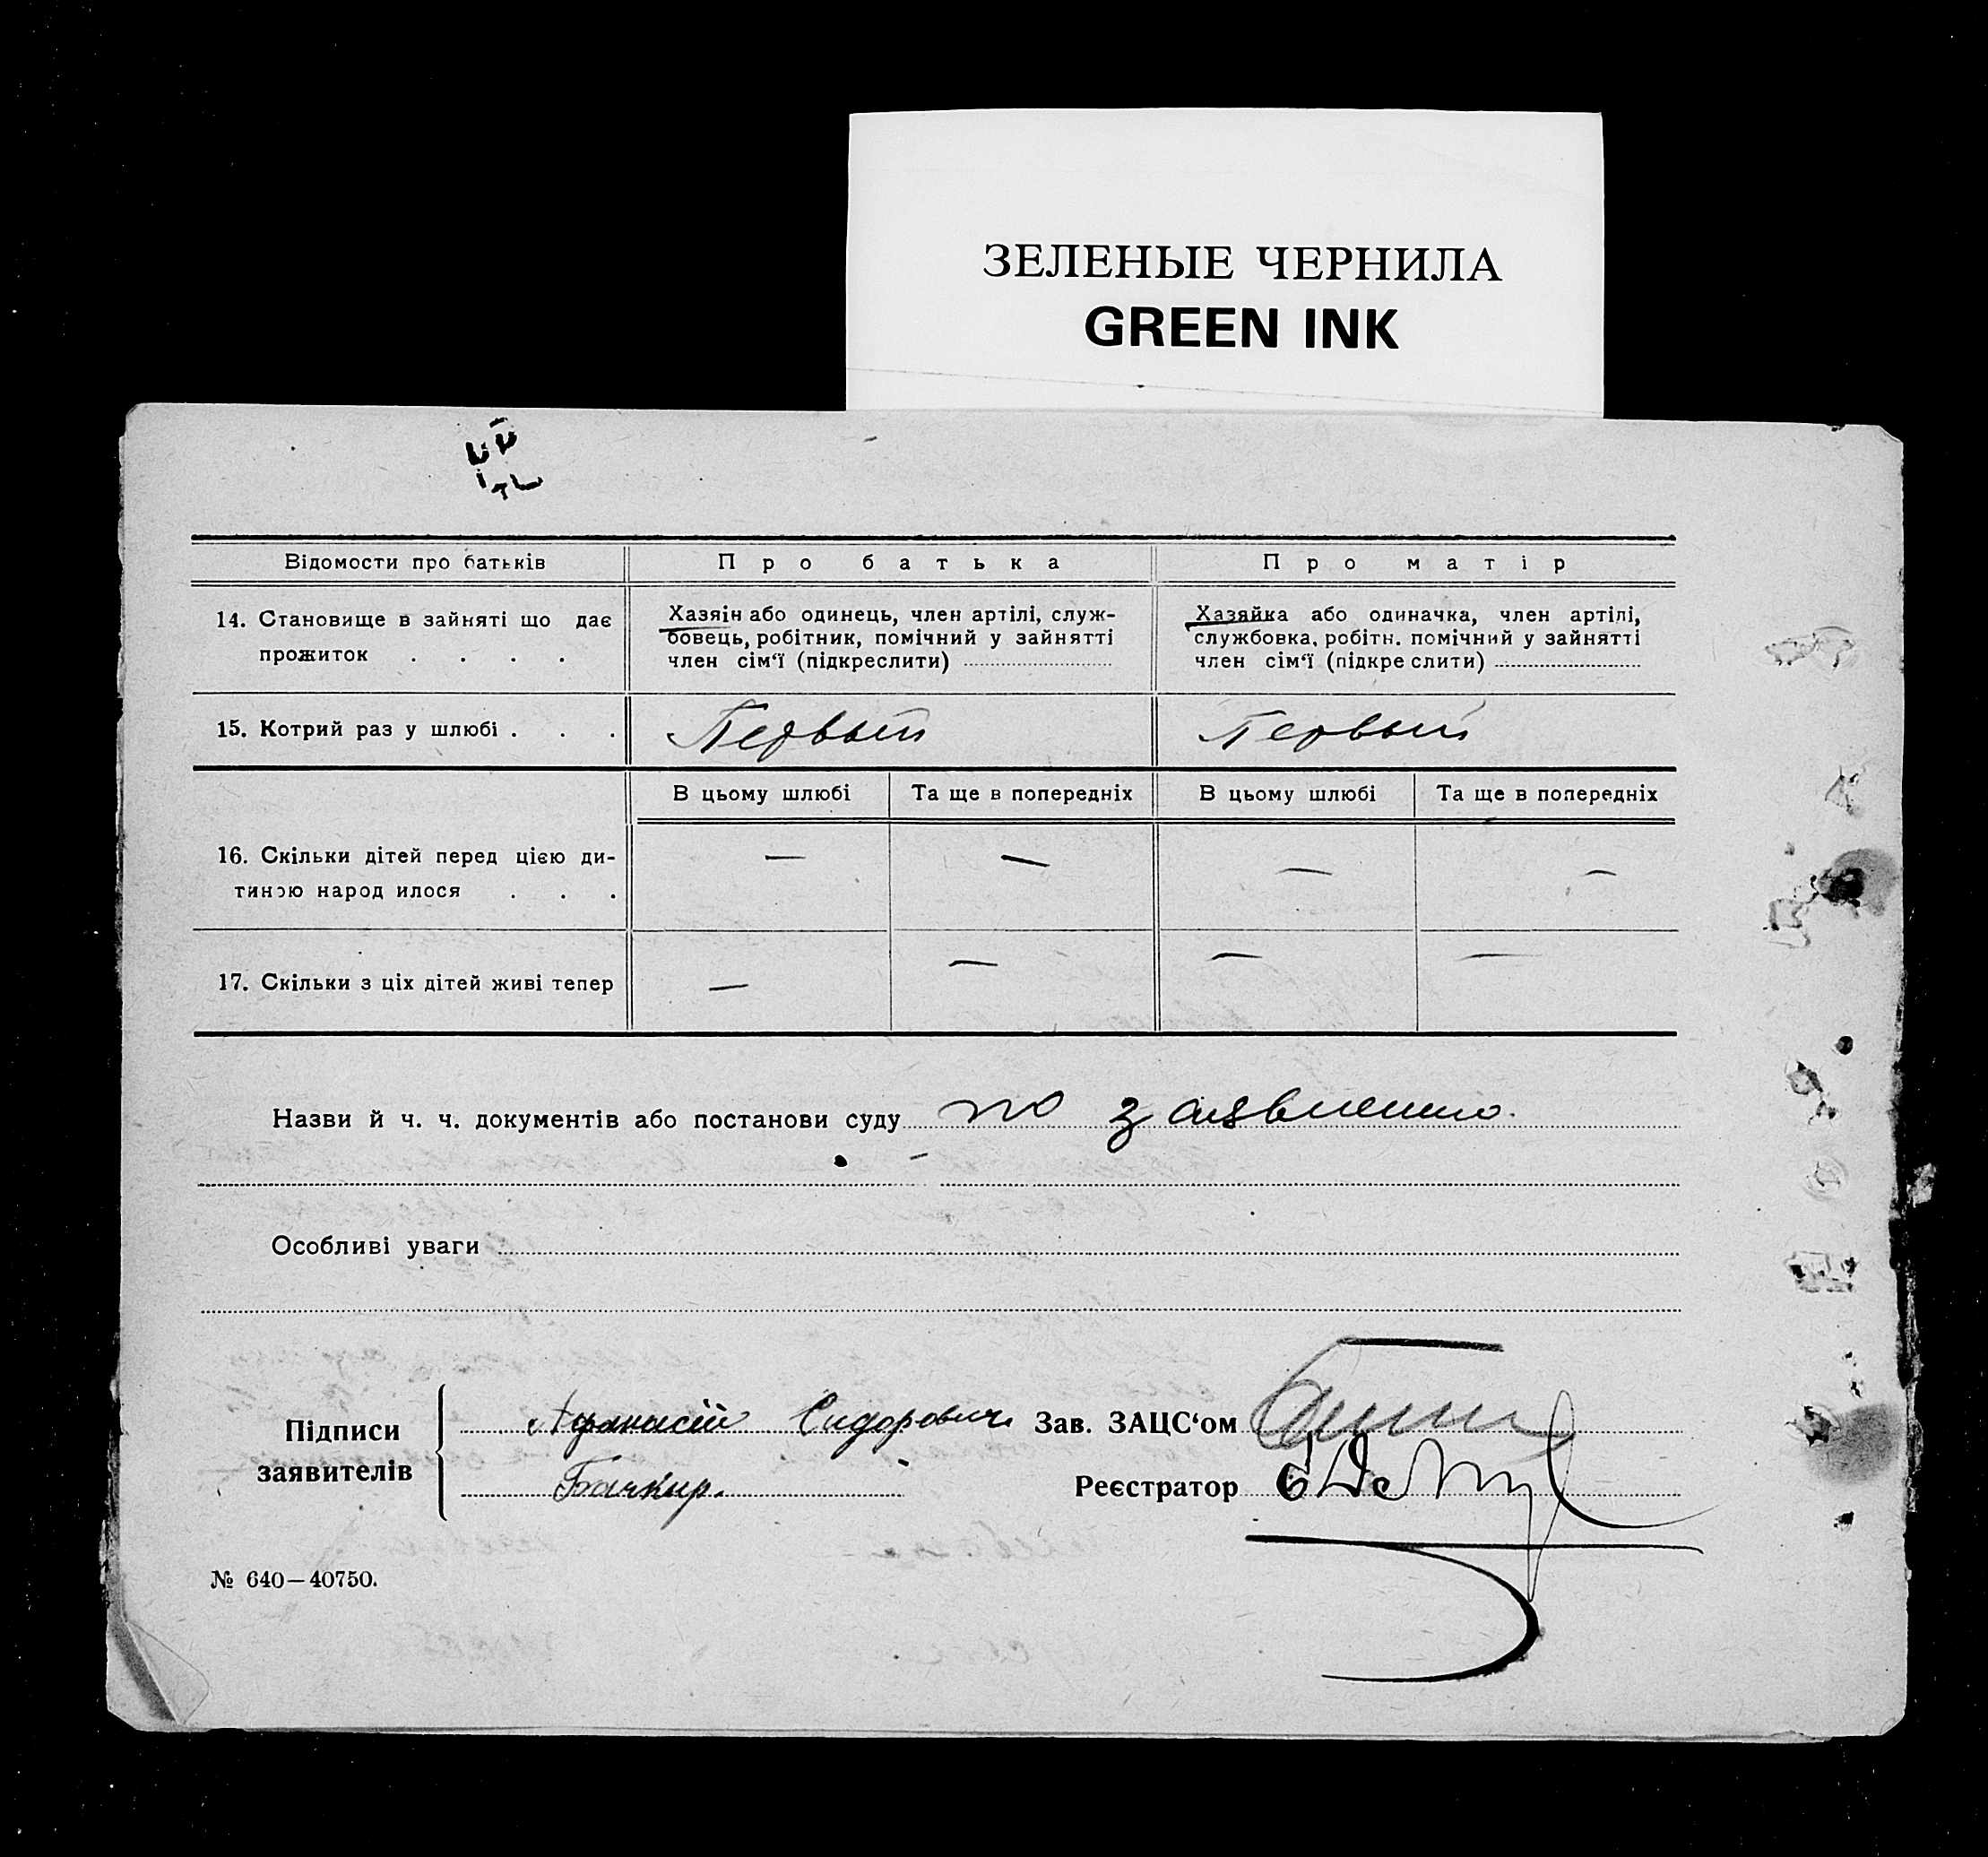 ЗЕЛЕНЫЕ ЧЕРНИЛА
GREEN INK
Відомости про батьків
Про батька
Про матір
14. Становище в зайняті що дає
прожиток . . . .
Хазяїн або одинець, член артілі, служ-
бовець, робітник, помічний у зайнятті
член сім‘ї (підкреслити)
Хазяйка або одиначка, член артілі,
службовка, робітн. помічний у зайнятті
член сім‘ї (підкре слити)
15. Котрий раз у шлюбі . . .
Первый
Первый
В цьому шлюбі
Та ще в попередніх
В цьому шлюбі
Та ще в попередніх
16. Скільки дітей перед цією ди-
тиною народ илося . . .
— — — —
17. Скільки з ціх дітей живі тепер
— — — —
Назви й ч. ч. документів або постанови суду по заявлению.
Особливі уваги
Підписи
заявителів
Афанасій Сидорович
Бачкир.
Зав. ЗАЦС‘ом
Реєстратор
№ 640—40750.